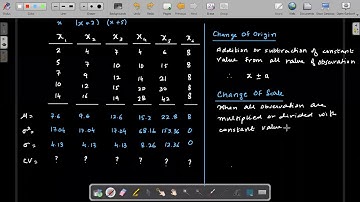 x (x+2) (x+5)
X₁ X₂ X₃ X₄ X₅ X₆
2 4 7 4 6 8
5 7 10 10 15 8
7 9 12 14 21 8
10 12 15 20 30 8
14 16 19 28 42 8
M = 7.6 9.6 12.6 15.2 22.8 8
σ² = 17.04 17.04 17.04 68.16 153.36 0
σ = 4.13 4.13 4.13 8.26 12.36 0
CV = ? ? ? ? ? ?
Change Of Origin
Addition or subtraction of constant
value from all value of observation
∴ x ± a
Change Of Scale
When all observation are
multiplied or divided with
constant value